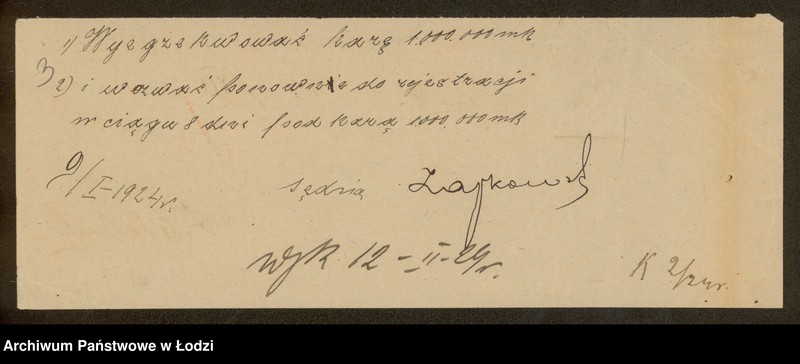 1) Wyegzekwować karę 1.000.000 mk
3
2) i wezwać ponownie do rejestracji
w ciągu 8 dni pod karą 1.000.000 mk
9/I-1924 r.
Sędzia
wyk 12-II-24 r.
K 2/24 r.
Archiwum Państwowe w Łodzi